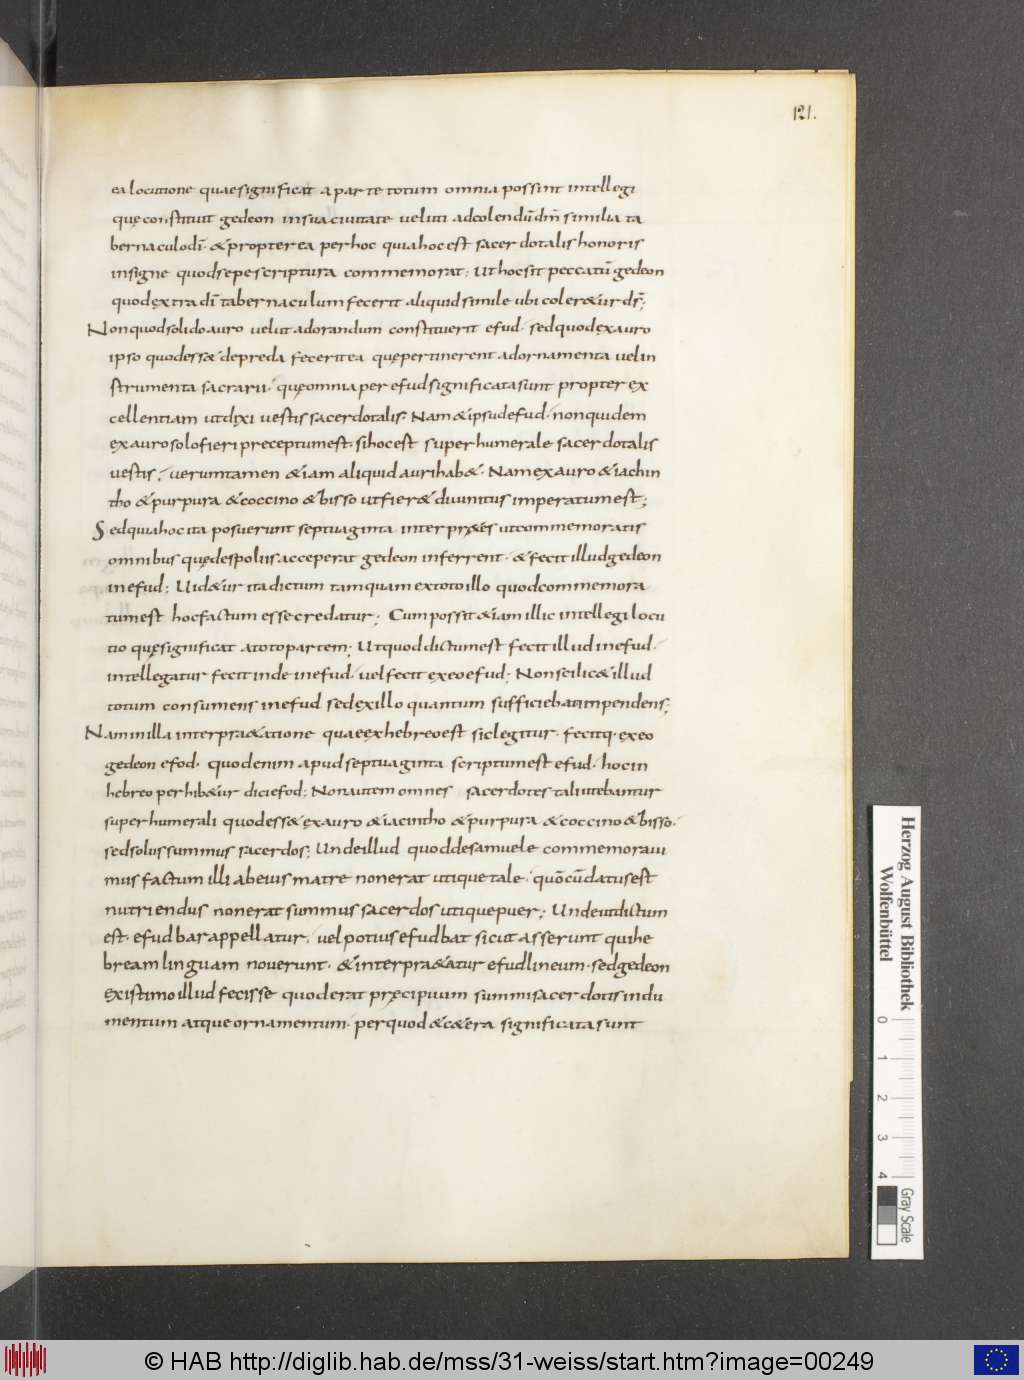 121.
ea locutione quae significat a parte totum omnia possint intellegi
quę constituit gedeon in sua ciuitate veluti ad colendū dm̄ similia ta
bernaculo dī· & propterea per hoc quia hoc est sacerdotalis honoris
insigne quod sepe scriptura commemorat; Ut hoc sit peccatū gedeon
quod extra dī tabernaculum fecerit aliquid simile ubi coler&ur ds̄;
Non quod solido auro velut adorandum constituerit efud· sed quod ex auro
ipso quod ess& de preda fecerit ea quę pertinerent ad ornamenta vel in
strumenta sacrarii· quę omnia per efud significata sunt propter ex
cellentiam ut dixi vestis sacerdotalis; Nam & ipsud efud· non quidem
ex auro solo fieri preceptum est· si hoc est superhumerale sacerdotalis
vestis; verumtamen &iam aliquid auri hab&· Nam ex auro & iachin
tho & purpura & coccino & bisso ut fier& diuinitus imperatum est;
Sed quia hoc ita posuerunt septuaginta interpr&es ut commemoratis
omnibus quę de spoliis acceperat gedeon inferrent· & fecit illud gedeon
in efud; Uid&ur ita dictum tamquam ex toto illo quod commemora
tum est hoc factum esse credatur; Cum possit &iam illic intellegi locu
tio quę significat a toto partem; Ut quod dictum est fecit illud in efud·
intellegatur fecit inde in efud· vel fecit ex eo efud; Non scilic& illud
totum consumens in efud sed ex illo quantum sufficiebat inpendens;
Nam in illa interpra&atione quae ex hebreo est sic legitur· fecitq· ex eo
gedeon efod· quod enim apud septuaginta scriptum est efud· hoc in
hebreo perhib&ur dici efod; Non autem omnes sacerdotes tali utebantur
superhumerali quod ess& ex auro & iacintho & purpura & coccino & bisso·
sed solus summus sacerdos; Unde illud quod de samuele commemoraui
mus factum illi ab eius matre non erat utique tale· quō cū datus est
nutriendus non erat summus sacerdos utique puer; Unde ut dictum
est· efud bar appellatur· vel potius efud bat sicut asserunt qui he
bream linguam noverunt· & interpra&atur efud lineum· sed gedeon
existimo illud fecisse quod erat pręcipuum summi sacerdotis indu
mentum atque ornamentum· per quod & c&era significata sunt
Herzog August Bibliothek
Wolfenbüttel
0 1 2 3 4
Gray Scale
© HAB http://diglib.hab.de/mss/31-weiss/start.htm?image=00249